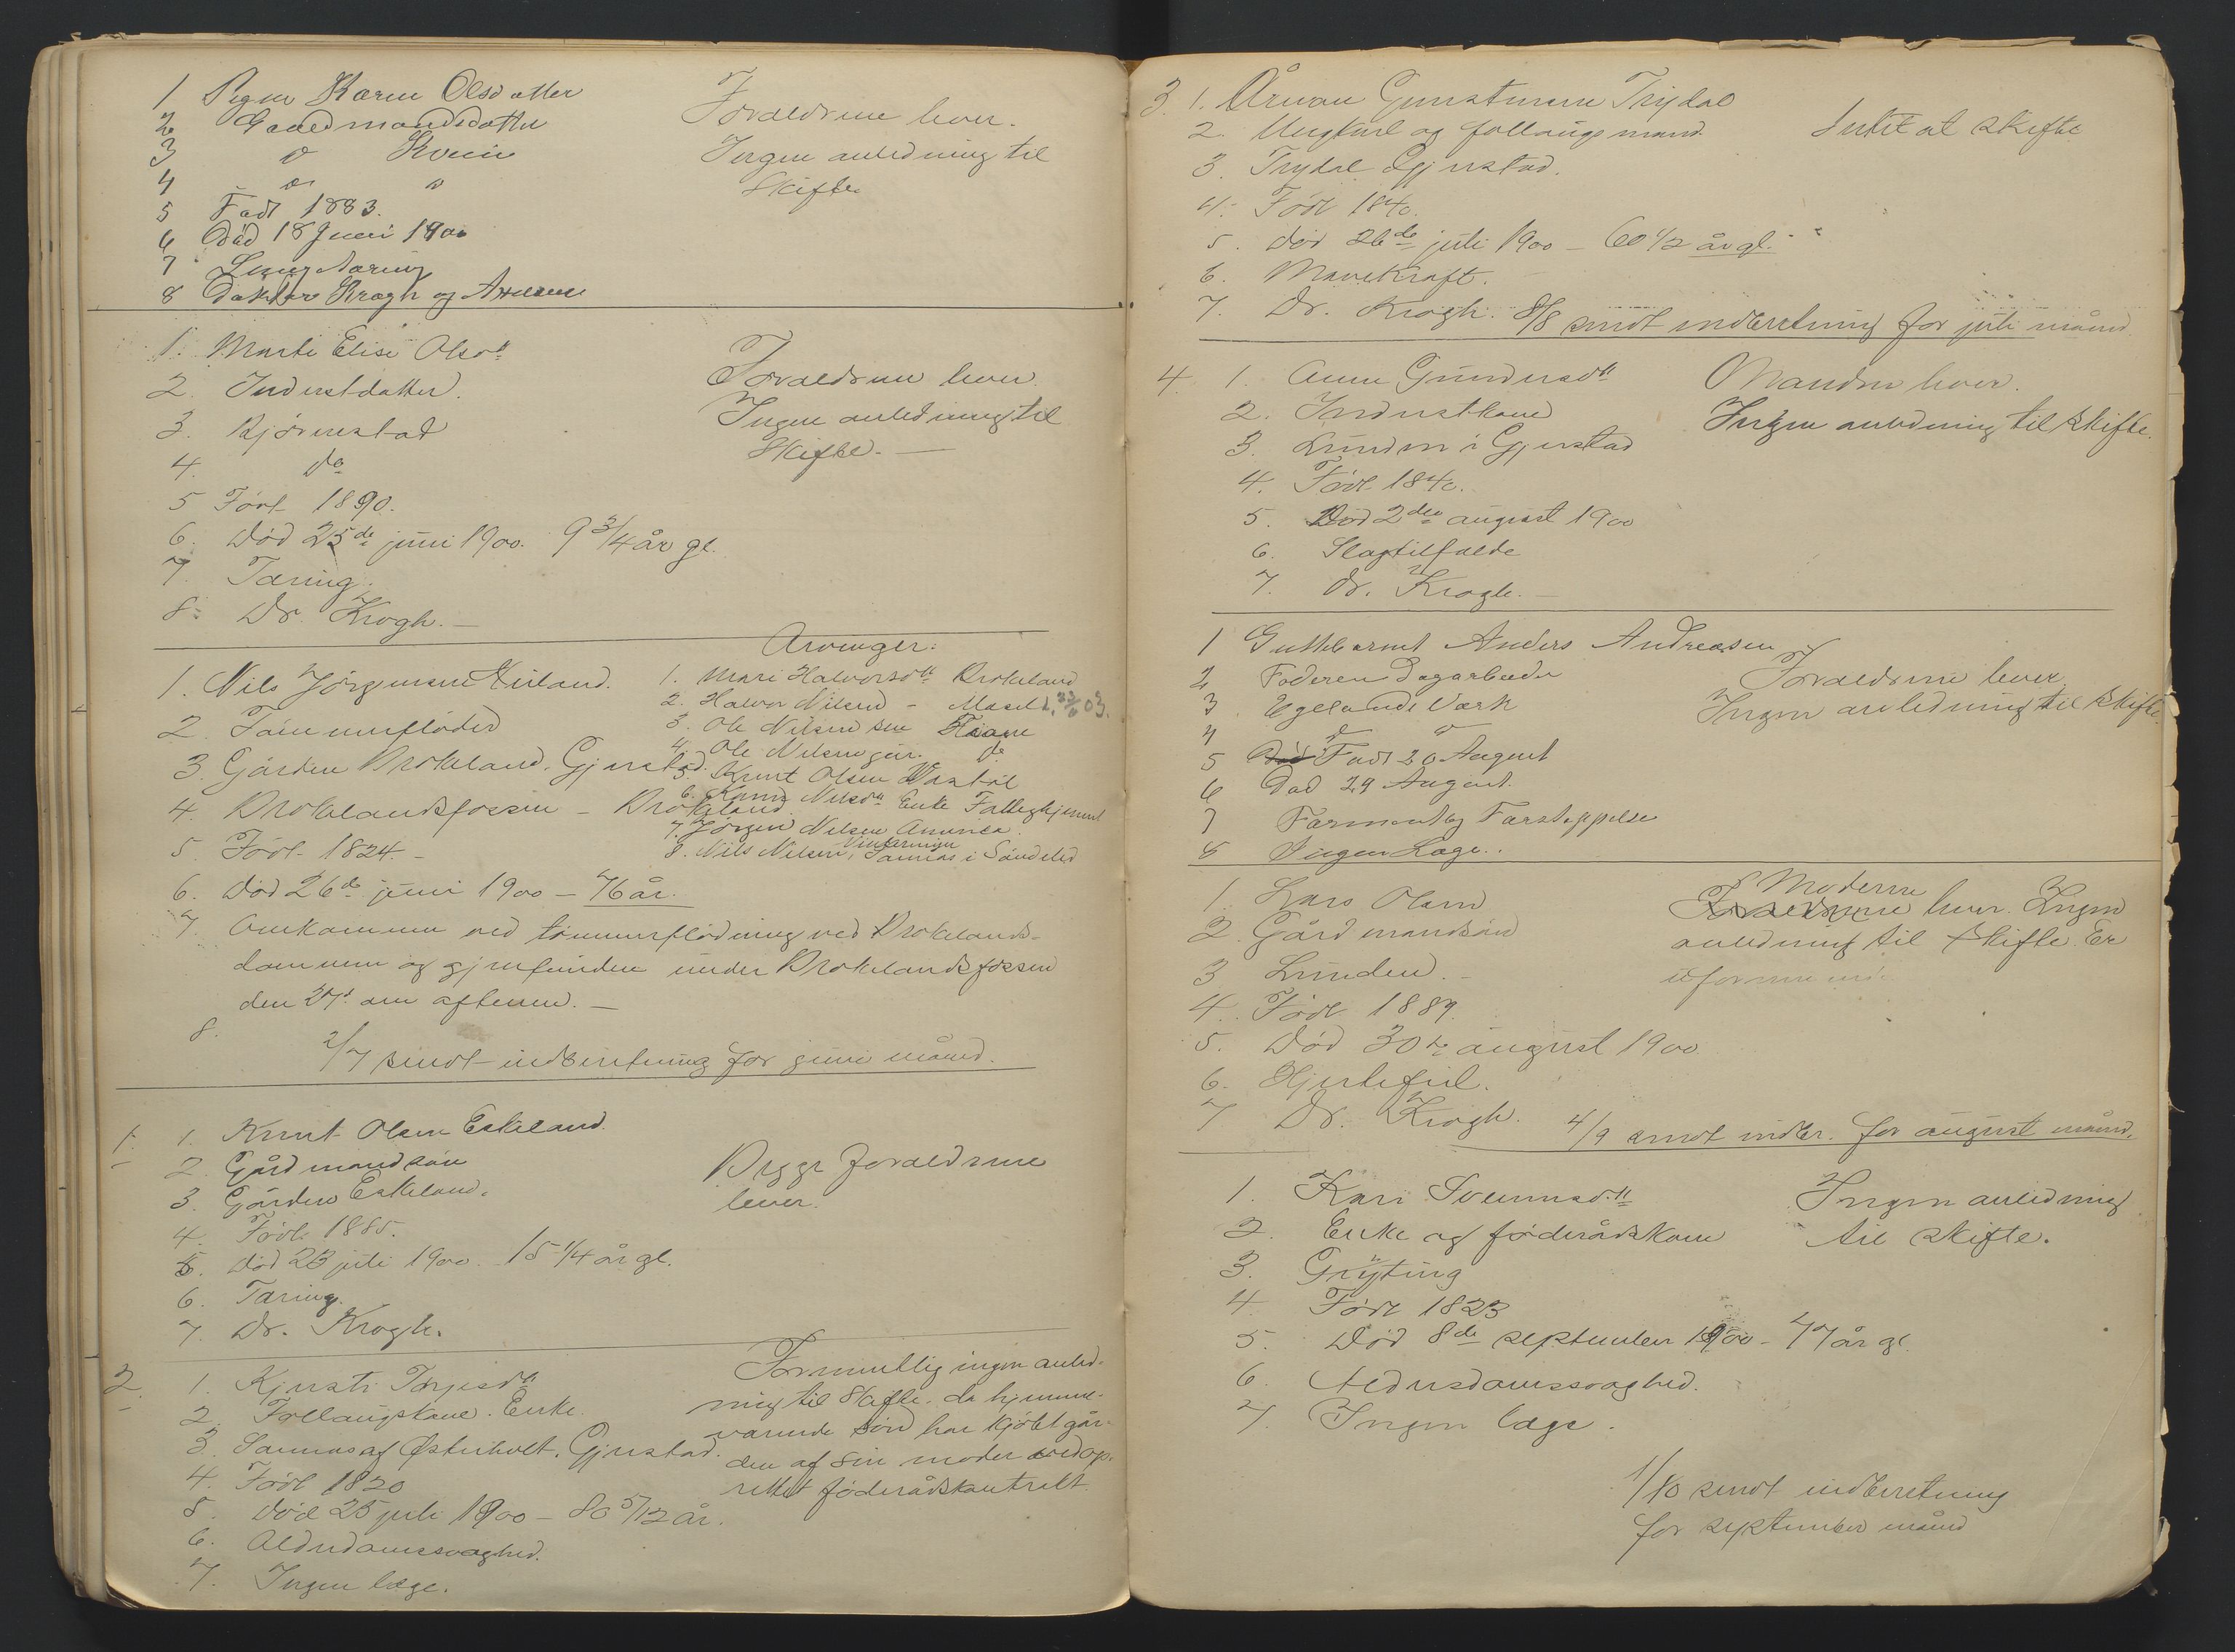 1 Pigen Karen Olsdatter
2 Gaardmandsdatter
3 do Kveim
4 do do
5 Født 1883.
6 Død 18 Juni 1900
7 Lungetæring
8 Doktor Krogh og
Forældrene lever.
Ingen anledning til
Skifte
1. Marte Elise Olsdtr
2. Inderstdatter.
3. Bjørnestad
4. do
5 Født 1890.
6. Død 25de juni 1900. 9 3/4 år gl.
7. Tæring.
8. Dr. Krogh. —
Forældrene lever.
Ingen anledning til
Skifte. —
1. Nils Jörgensen
2. Tömmerflöder
3. Gården Brokeland. Gjerstad.
4. Brokelandsfossen – Brokeland
5. Födt 1824. –
6. Död 26de juni 1900 – 76 år.
7. Omkommen ved tömmerflödning ved Brokelands-
dammen og gjenfunden under Brokelandsfossen
den 27d om aftenen. —
8. 2/7 sendt indberetning for juni måned.
Arvinger:
1. Mari Halvorsdtr Brokeland
2. Halvor Nilsen –
3. Ole Nilsen sen
4. Ole Nilsen jün. do
5. Knut Olsen
6. Nilsdtr Enke Fattighjemmet
7. Jörgen Nilsen Amerika
8. Nils Nilsen, i Söndeled
1. 1. Knut Olsen Eskeland.
2. Gårdmandsön
3. Gården Eskeland.
4. Födt 1885.
5. Död 23 juli 1900. 15 1/4 år gl.
6. Tæring.
7. Dr. Krogh.
Begge forældrene
lever.
2. 1. Kjersti Terjesdtr
2. Follaugskone. Enke.
3. Sammas af Østerholt. Gjerstad.
4. Födt 1820
5. Död 25 juli 1900 – 80 5/12 år.
6. Alderdomssvaghed.
7. Ingen læge.
Formentlig ingen anled-
ning til Skifte, da hjemme-
værende sön har kjöbt går-
den af sin moder ved op-
rettet föderådskontrakt.
3. 1. Gunstensen Trydal
2. Ungkarl og follaugsmand.
3. Trydal Gjerstad.
4. Födt 1840.
5. död 26de juli 1900 – 60 1/2 år gl.
6. Mavekræft.
7. Dr. Krogh. 8/8 sendt indberetning for juli måned
Intet at skifte
4. 1. Anne Gundersdtr
2. Inderstkone
3. Lunden i Gjerstad
4. Födt 1840.
5. Död 2den august 1900
6. Slagtilfælde
7. Dr. Krogh. —
Manden lever.
Ingen anledning til skifte.
1 Guttebarnet Anders Andreasen
2 Faderen Dagarbeider
3 Egelands Værk
4 do do
5 Død Født 20 August
6 Død 29 August.
7 Farstoppelse
8 Ingen Læge.
Forældrene lever.
Ingen anledning til skifte.
1. Lars Olsen
2. Gårdmandsön
3 Lunden. –
4. Födt 1889.
5. Död 30te august 1900
6. Hjertefeil.
7 Dr. Krogh. 4/9 sendt indber. for august måned.
Moderen
Forældrene lever. Ingen
anledning til skifte. Er
uformuende
1. Kari Svennsdtr
2. Enke og föderådskone
3. Gryting
4. Födt 1823
5. Död 8de september 1900 – 77 år gl.
6. Aldersdomssvaghed.
7. Ingen læge.
Ingen anledning
til skifte.
1/10 sendt indberetning
for september måned